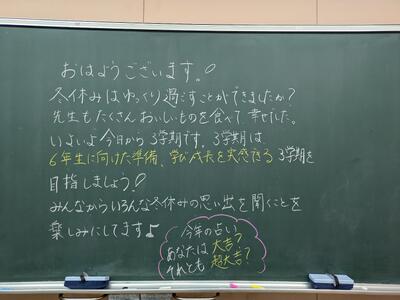 おはようございます。
冬休みはゆっくり過ごすことができましたか?
先生もたくさんおいしいものを食べて幸せでした。
いよいよ今日から3学期です。3学期は、
6年生に向けた準備、学び成長を実感できる3学期を
目指しましょう!
みんなからいろんな冬休みの思い出を聞くことを
楽しみにしてます♪
今年の占い
あなたは大吉?
それとも超大吉?